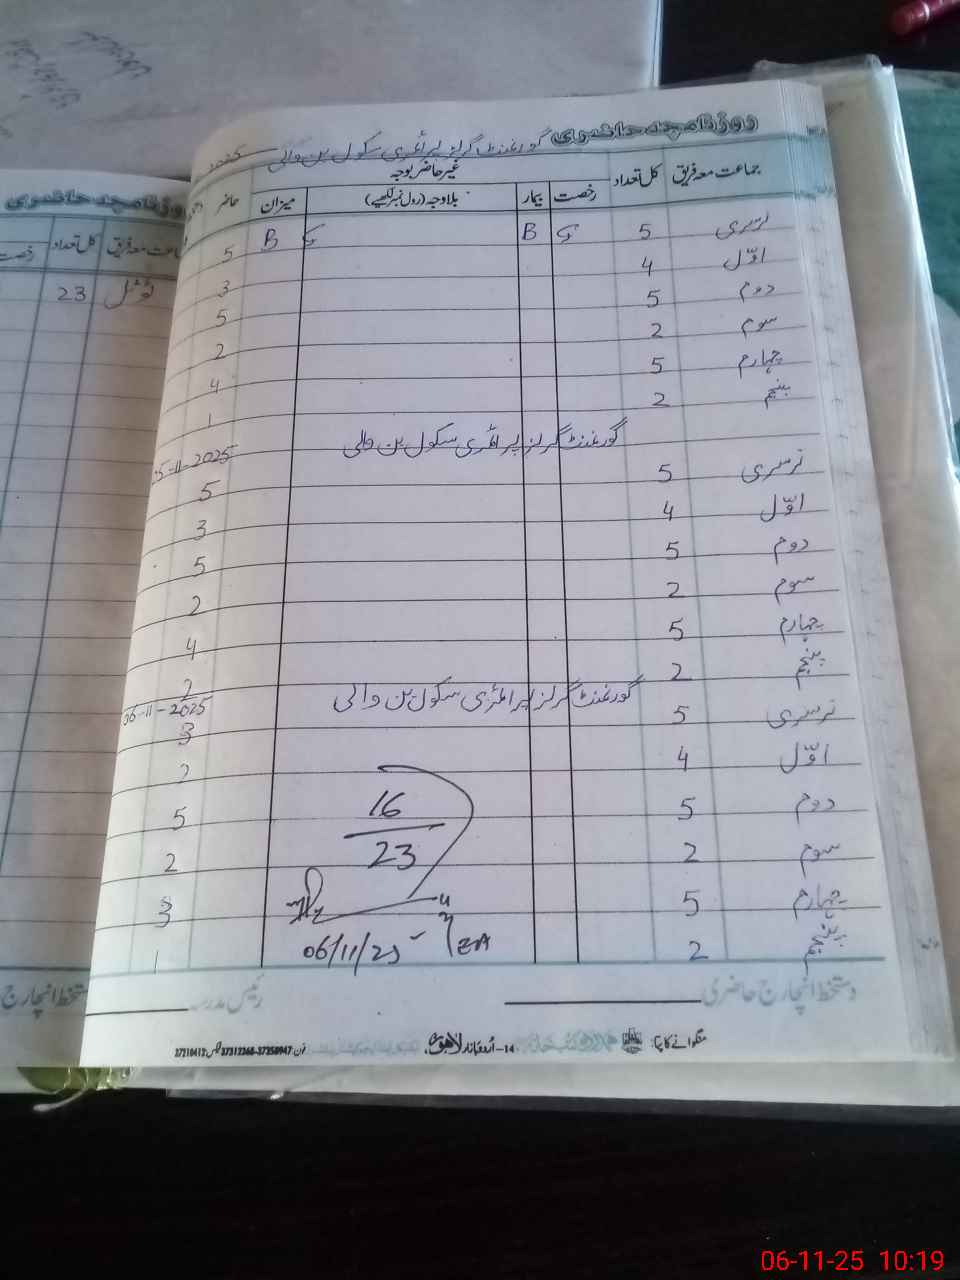 روزنامچہ حاضری گورنمنٹ گرلز پرائمری سکول بن والی
جماعت معہ فریق کل تعداد غیر حاضر بوجہ حاضر
رخصت بیمار بلاوجہ (رول نمبر لکھیے) میزان
نرسری 5 B B 5
اوّل 4 3
دوم 5 5
سوم 2 2
چہارم 5 4
پنجم 2 1
گورنمنٹ گرلز پرائمری سکول بن والی 05-11-2025
نرسری 5 5
اوّل 4 3
دوم 5 5
سوم 2 2
چہارم 5 4
پنجم 2 2
گورنمنٹ گرلز پرائمری سکول بن والی 06-11-2025
نرسری 5 3
اوّل 4 2
دوم 5 5
سوم 2 2
چہارم 5 3
پنجم 2 1
16
23
06/11/25
دستخط انچارج حاضری
رئیس مدرسہ
منگوانے کا پتا:
14-اُردو بازار لاہور
فون 37358947-37312368 فیکس 37210412
روزنامچہ حاضری
جماعت معہ فریق کل تعداد رخصت
ٹوٹل 23
دستخط انچارج
06-11-25 10:19